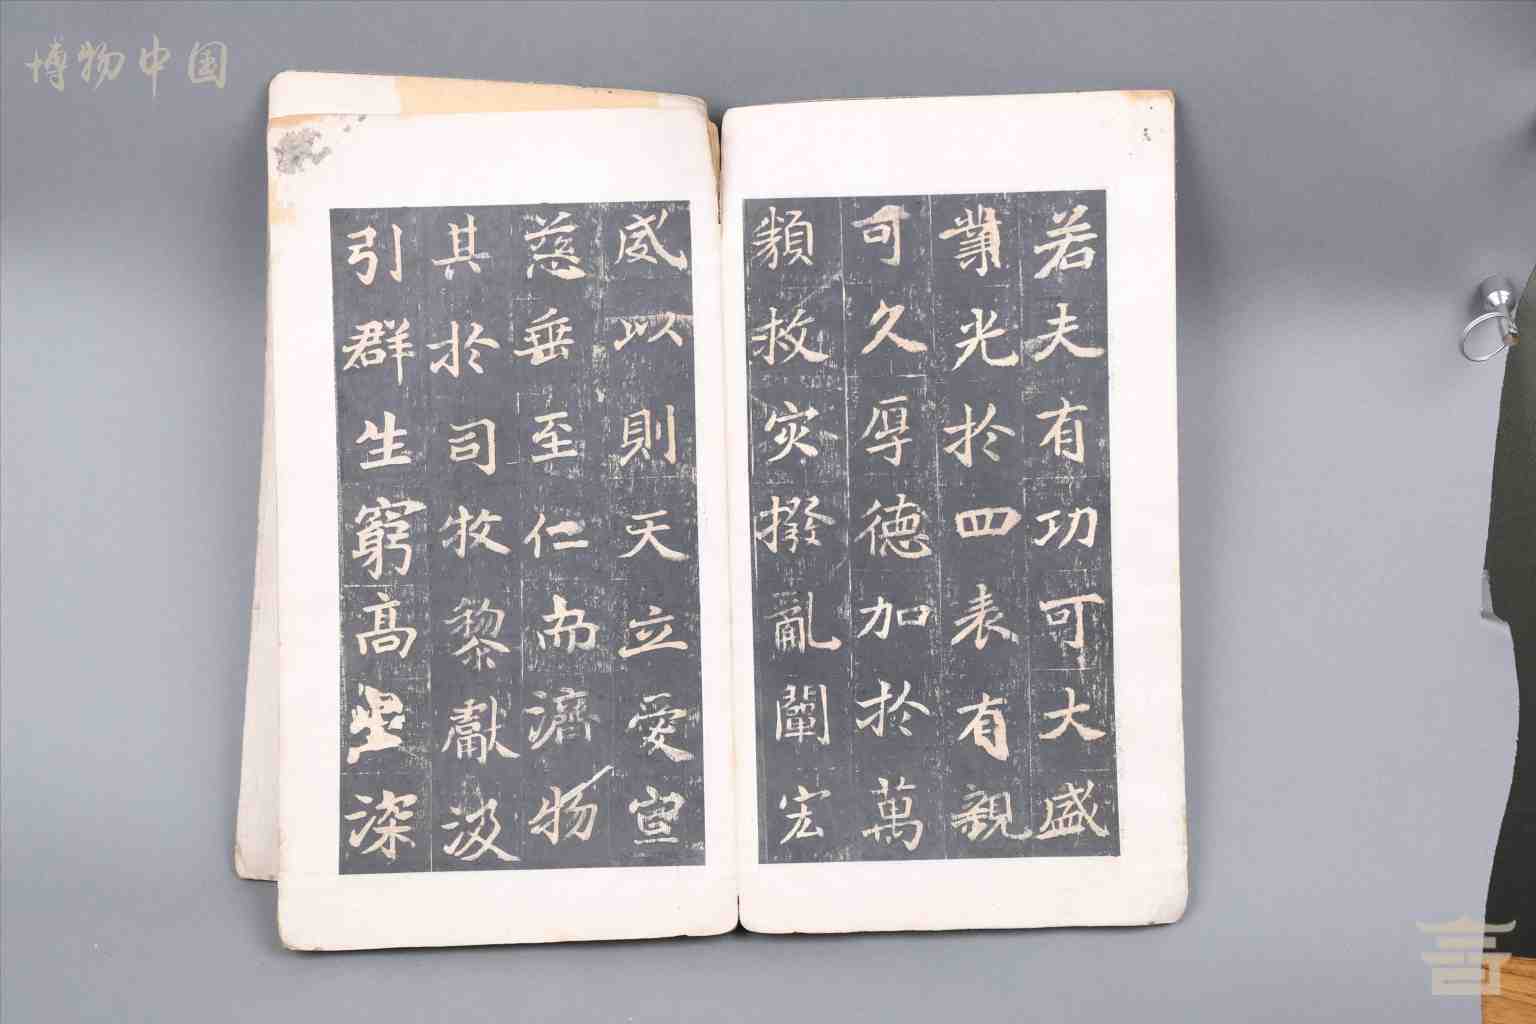 博物中国
若夫有功可大盛
業光於四表有親
可久厚德加於萬
類救灾撥亂闡宏
威以則天立愛宣
慈垂至仁而濟物
其於司牧黎獻汲
引群生窮高深